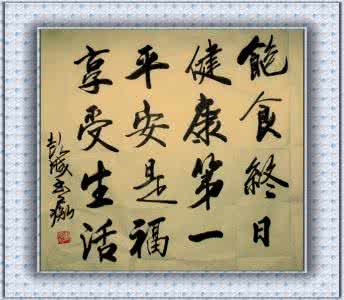 飽食終日
健康第一
平安是福
享受生活
彭城書痴